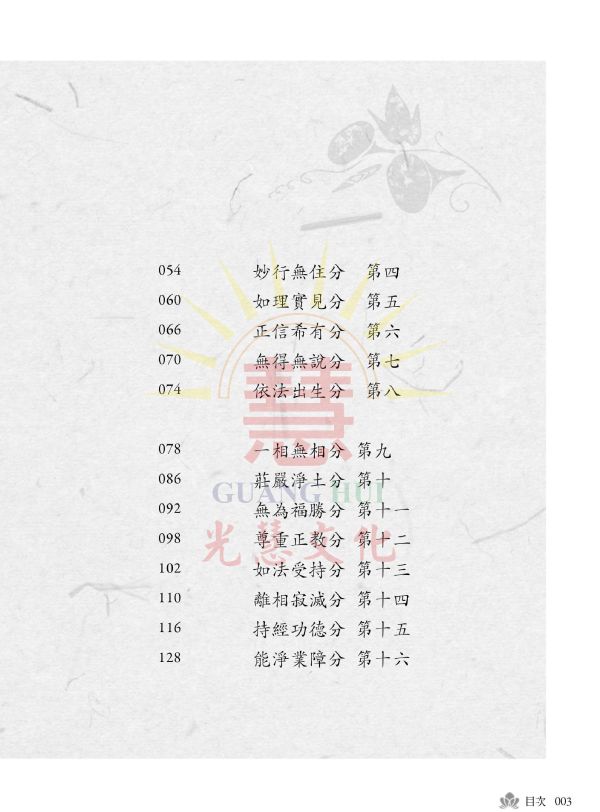 054 妙行無住分 第四
060 如理實見分 第五
066 正信希有分 第六
070 無得無說分 第七
074 依法出生分 第八
078 一相無相分 第九
086 莊嚴淨土分 第十
092 無為福勝分 第十一
098 尊重正教分 第十二
102 如法受持分 第十三
110 離相寂滅分 第十四
116 持經功德分 第十五
128 能淨業障分 第十六
慧
GUANG HUI
光慧文化
目次 003